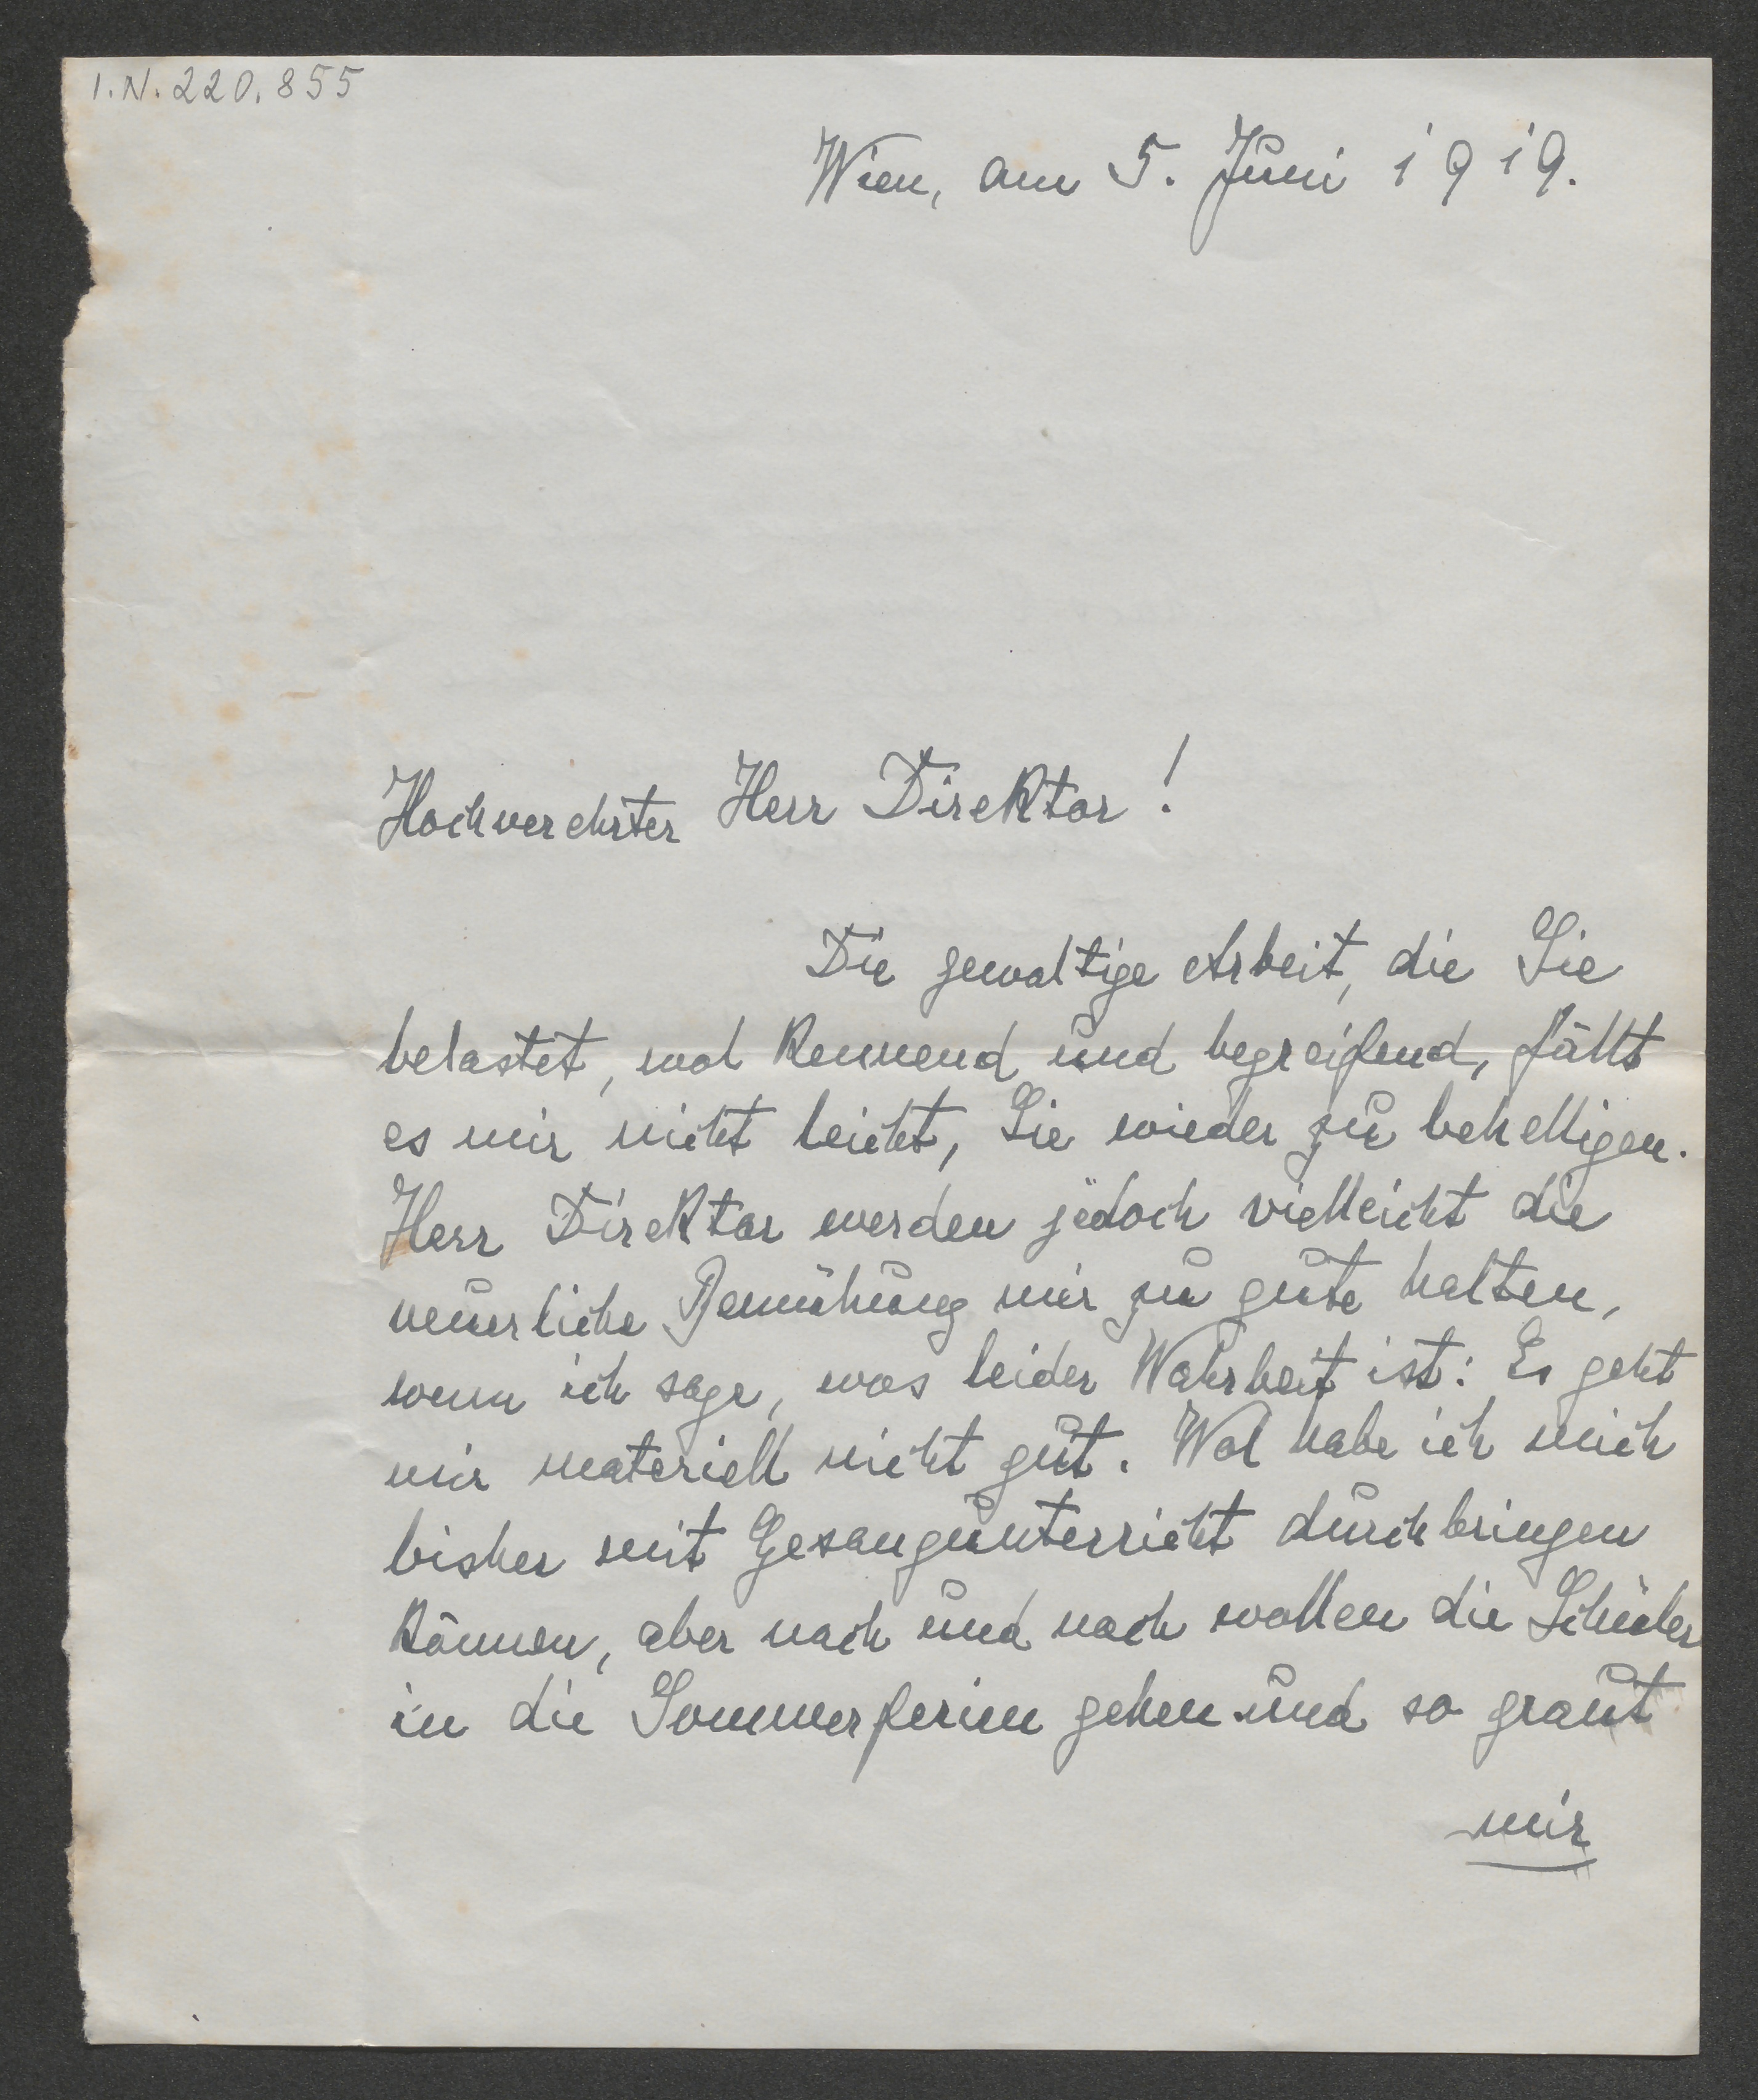 I.N. 220.855
Wien, am 5. Juni 1919.
Hochverehrter Herr Direktor!
Die gewaltige Arbeit, die Sie
belastet, wol kennend und begreifend, fällt
es mir nicht leicht, Sie wieder zu behelligen.
Herr Direktor werden jedoch vielleicht die
neuerliche Bemühung mir zu gute halten,
wenn ich sage, was leider Wahrheit ist: Es geht
mir materiell nicht gut. Wol habe ich mich
bisher mit Gesangunterricht durchbringen
können, aber nach und nach wollen die Schüler
in die Sommerferien gehen und so graut
mir